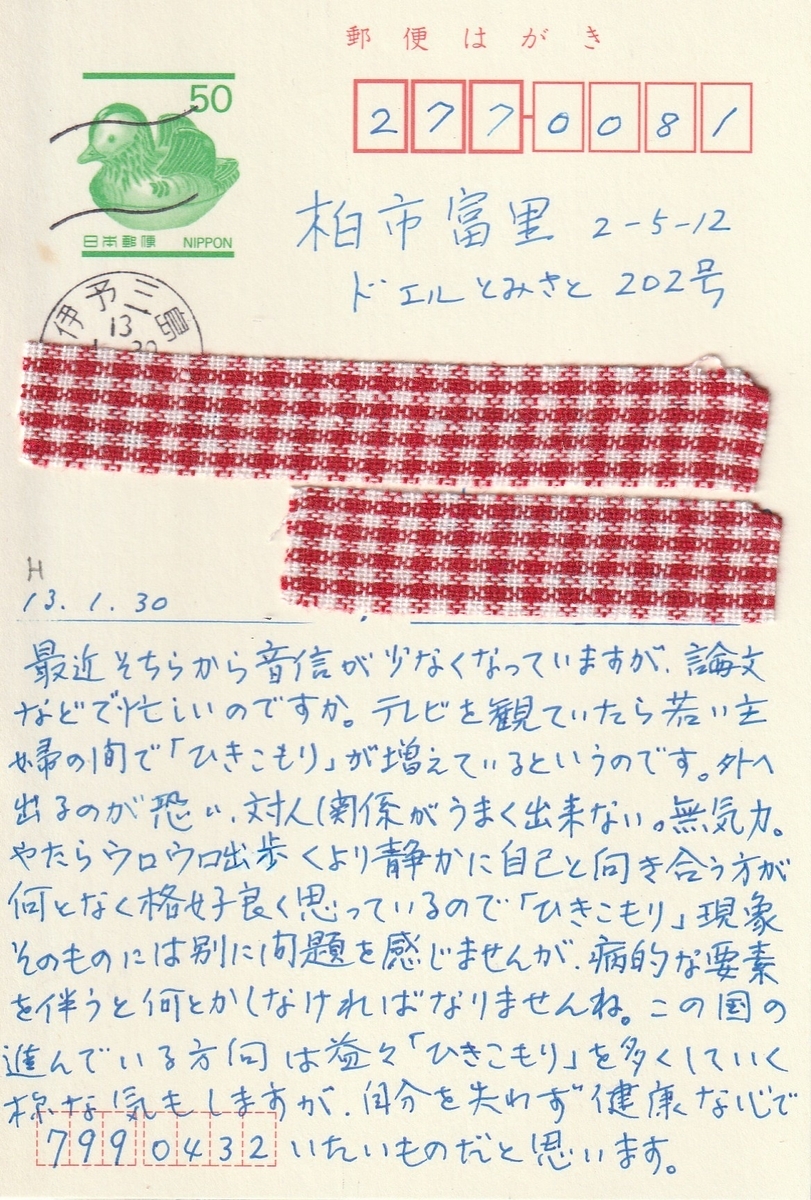 郵便はがき
50
日本郵便 NIPPON
2770081
柏市富里 2-5-12
ドエルとみさと 202号
伊予三島
13
H
13.1.30
最近そちらから音信が少なくなっていますが、論文
などで忙しいのですか。テレビを観ていたら若い主
婦の間で「ひきこもり」が増えているというのです。外へ
出るのが恐い、対人関係がうまく出来ない。無気力。
やたらウロウロ出歩くより静かに自己と向き合う方が
何となく格好良く思っているので「ひきこもり」現象
そのものには別に問題を感じませんが、病的な要素
を伴うと何とかしなければなりませんね。この国の
進んでいる方向は益々「ひきこもり」を多くしていく
様な気もしますが、自分を失わず健康な心で
いたいものだと思います。
7990432